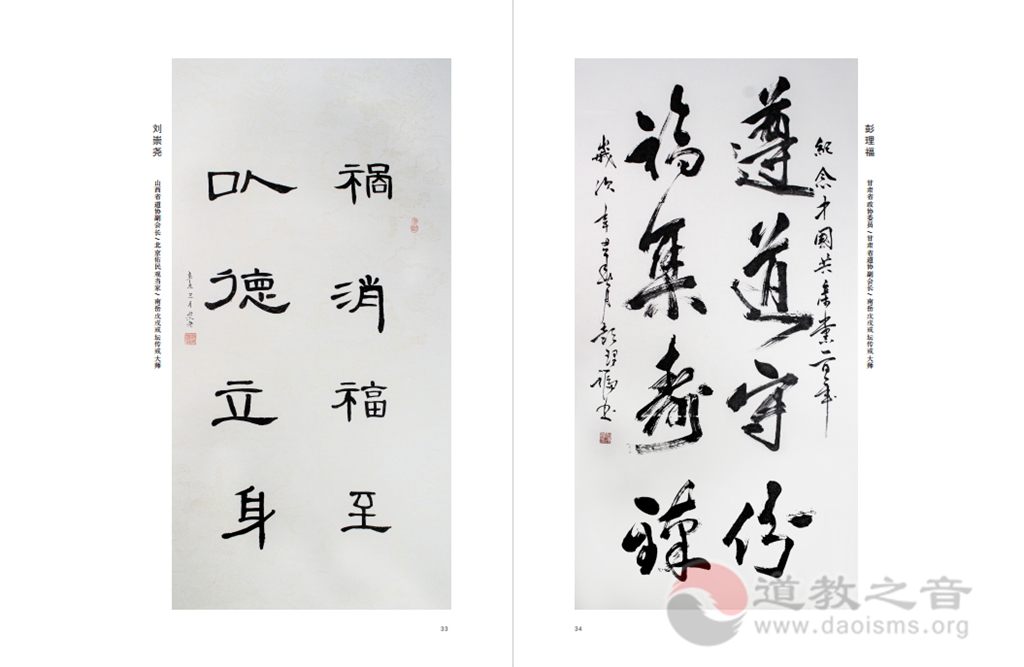 刘崇尧
山西省道协副会长/北京佑民观当家/南岳戊戌戒坛传戒大师
祸消福至
以德立身
33
彭理福
甘肃省政协委员/甘肃省道协副会长/南岳戊戌戒坛传戒大师
紀念中國共产党一百年
遵道守份
福集壽臻
歲次辛丑
彭理福书
34
道教之音
www.daoisms.org